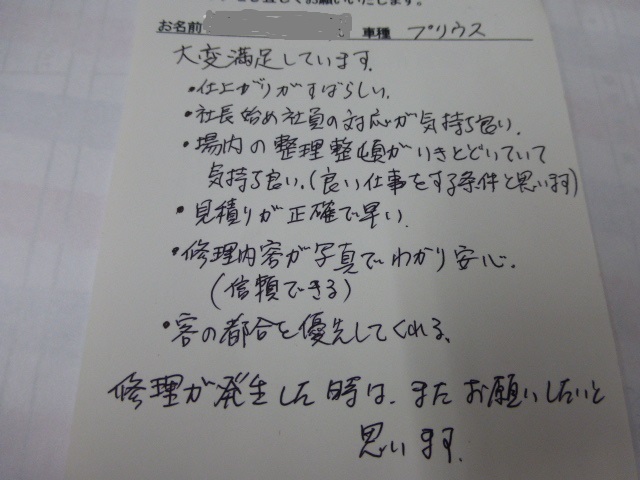 よろしくお願いいたします。
お名前 車種 プリウス
大変満足しています。
・仕上がりがすばらしい。
・社長始め社員の対応が気持ち良い。
・場内の整理整頓がいきとどいていて
気持ち良い。(良い仕事をする条件と思います)
・見積りが正確で早い。
・修理内容が写真でわかり安心。
(信頼できる)
・客の都合を優先してくれる。
修理が発生した時は、またお願いしたいと
思います。